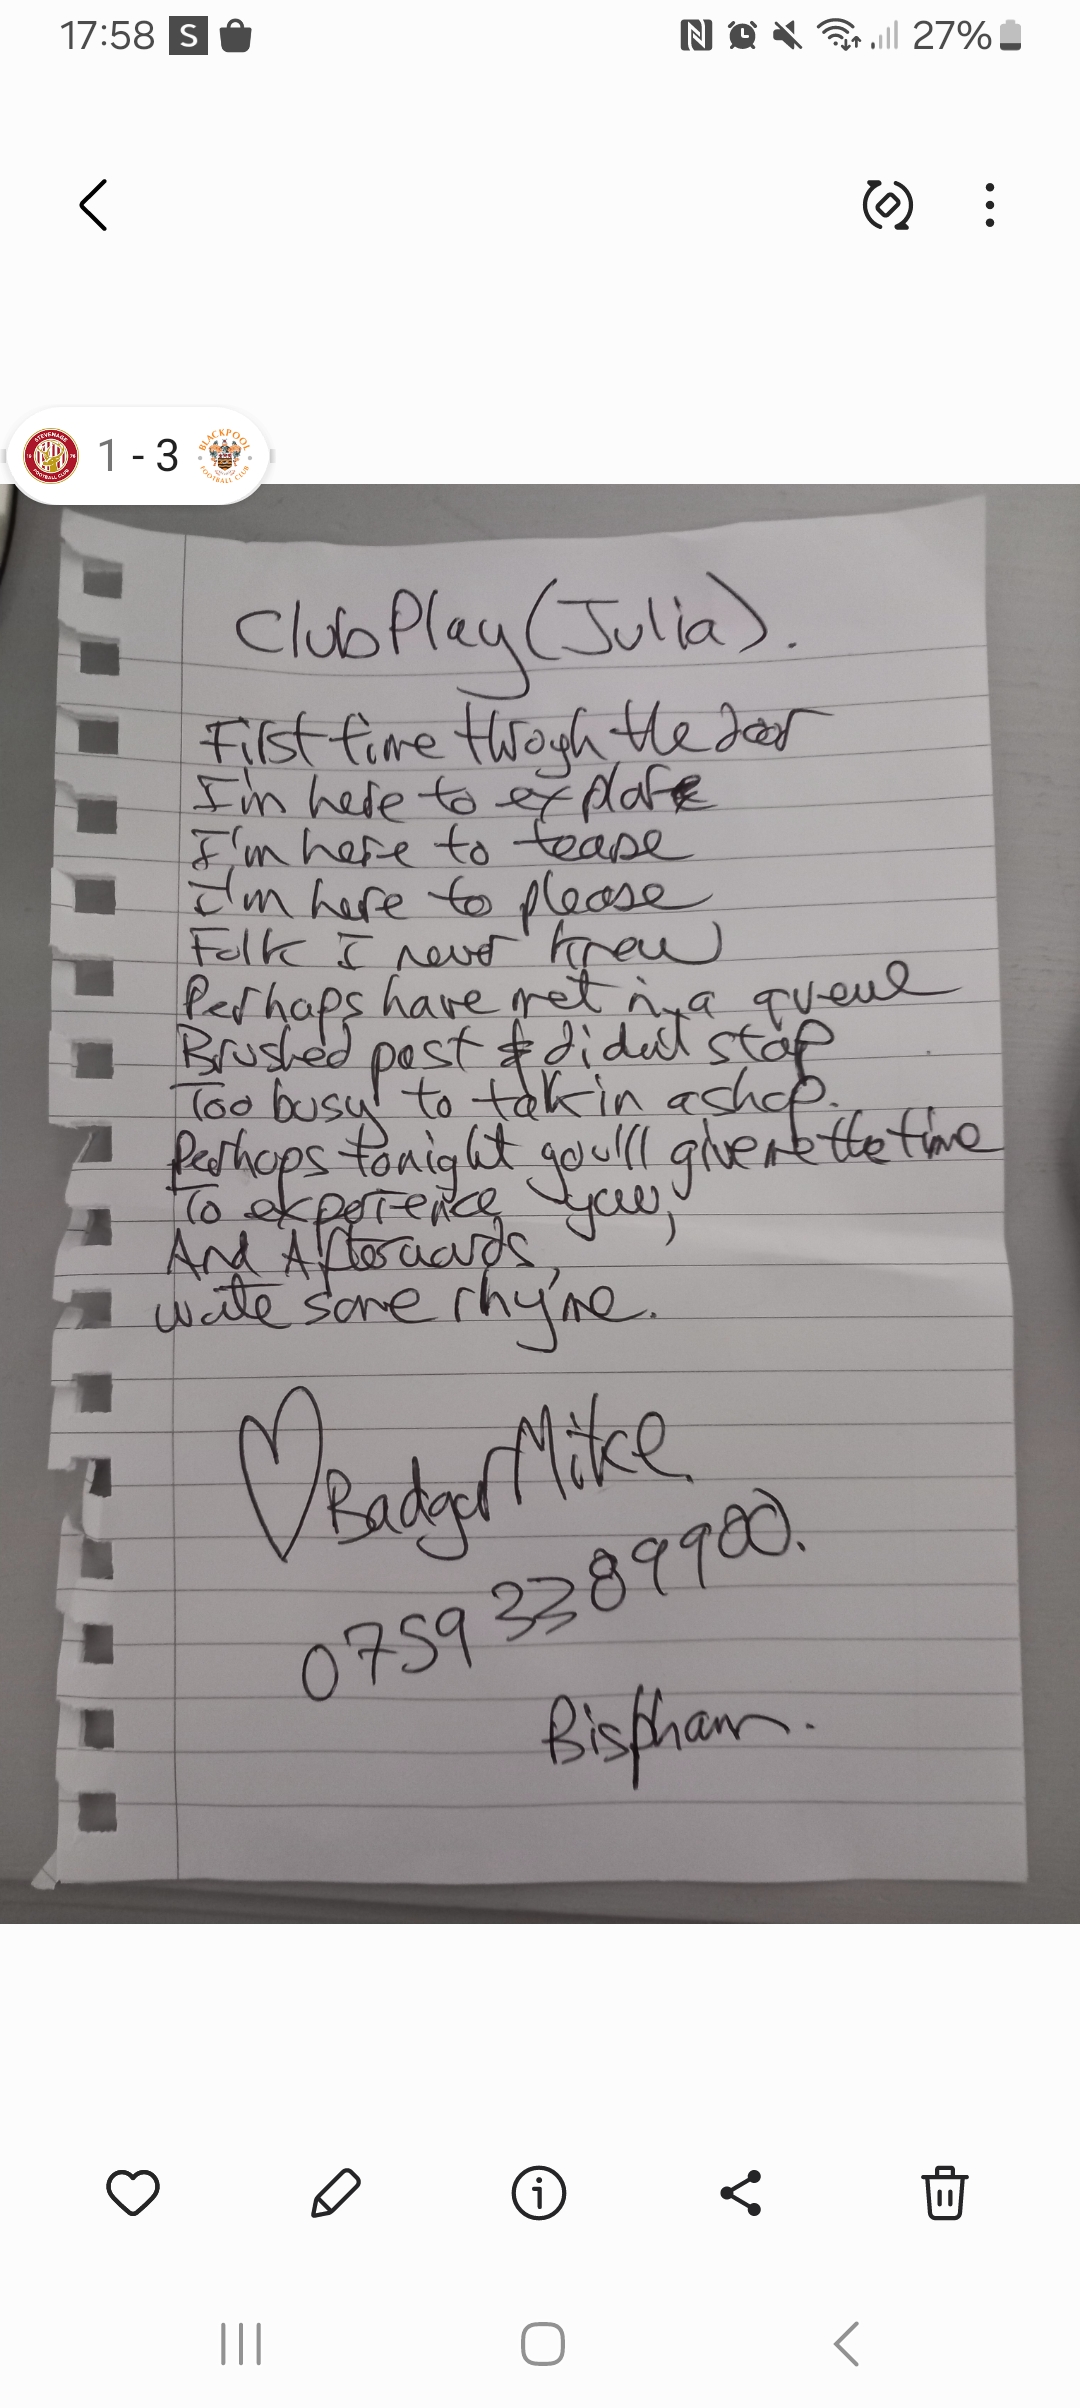 17:58
S
27%
STEVENAGE
FOOTBALL CLUB
1 - 3
BLACKPOOL
FOOTBALL CLUB
Club Play (Julia).
First time throgh the door
I'm here to explore
I'm here to tease
I'm here to please
Folk I never knew
Perhaps have met in a queue
Brushed past & didn't stop
Too busy to talk in a shop.
Perhaps tonight you'll give me the time
To experience you,
And Afterwards,
write some rhyme.
Badger Mike
0759 3389900.
Bispham.